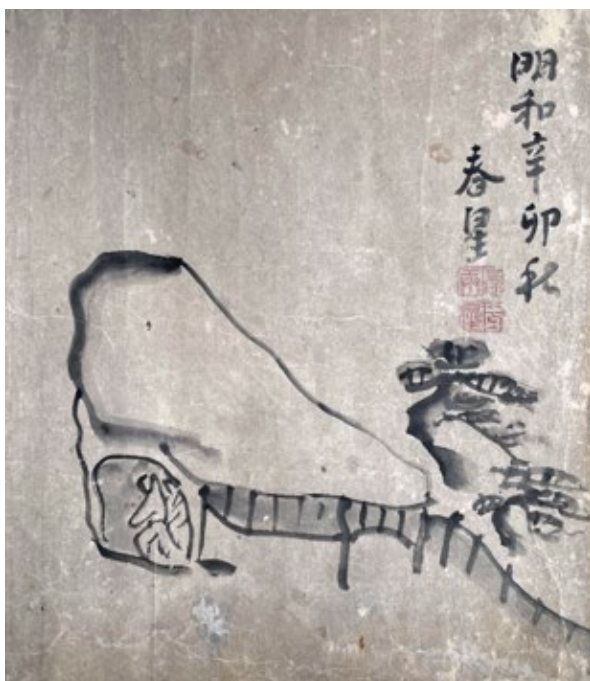 明和辛卯秋
春星